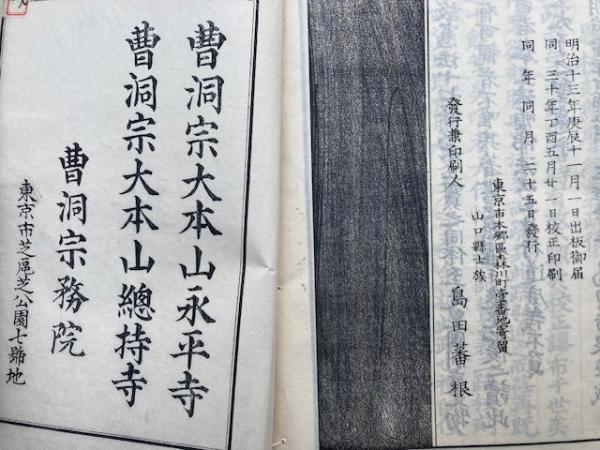 明治十三年庚辰十一月一日出板御届
同三十年丁酉五月廿一日校正印刷
同年同月二十五日發行
東京市本郷區森川町壹番地寄留
山口縣士族
發行兼印刷人
島田蕃根
曹洞宗大本山永平寺
曹洞宗大本山總持寺
曹洞宗務院
東京市芝區芝公園七號地